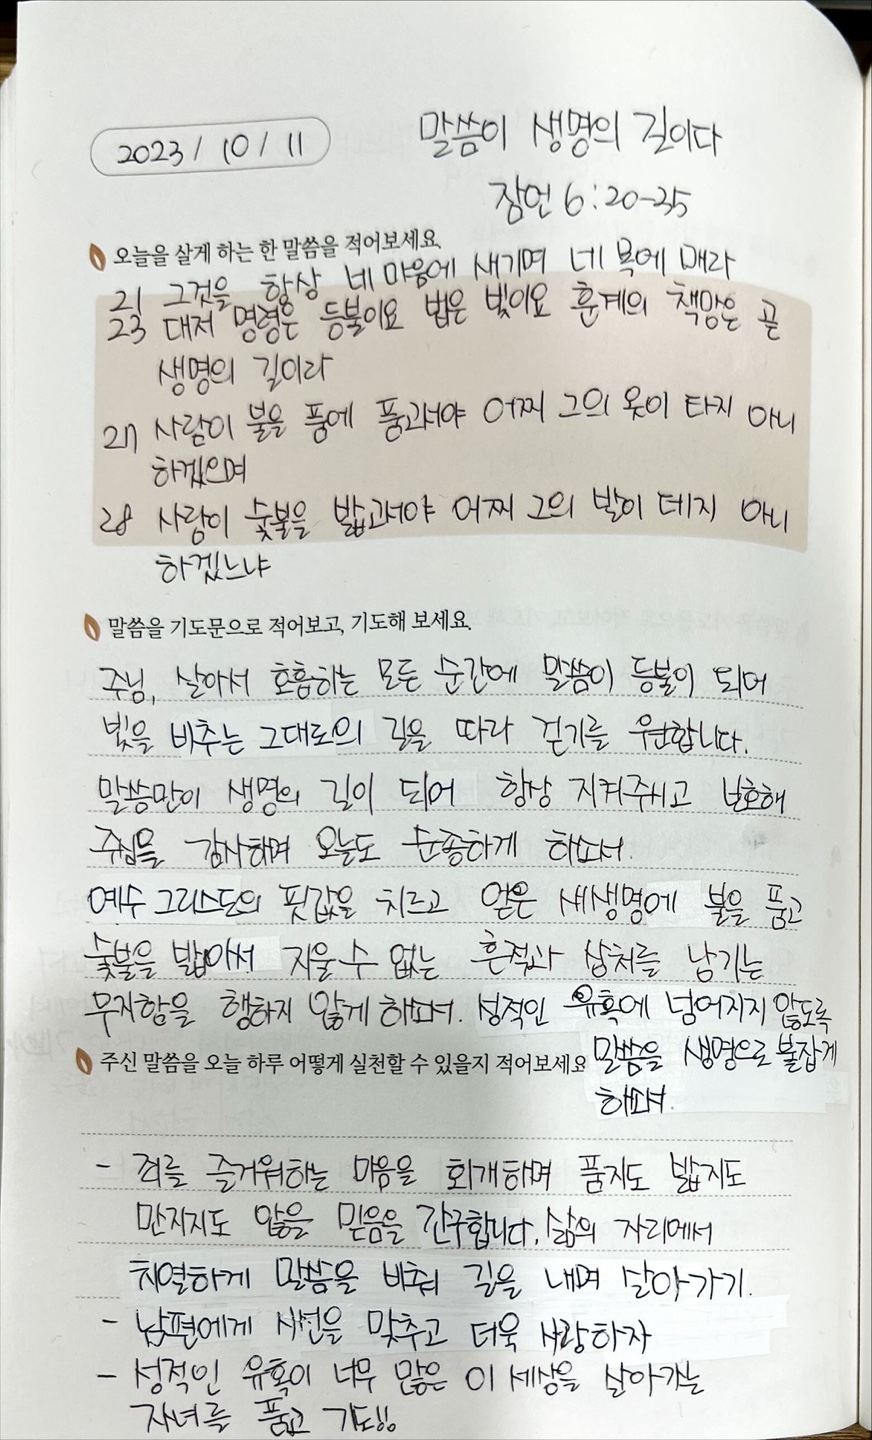 2023 / 10 / 11
말씀이 생명의 길이다
잠언 6:20-35
오늘을 살게 하는 한 말씀을 적어보세요.
21 그것을 항상 네 마음에 새기며 네 목에 매라
23 대저 명령은 등불이요 법은 빛이요 훈계의 책망은 곧
생명의 길이라
27 사람이 불을 품에 품고서야 어찌 그의 옷이 타지 아니
하겠으며
28 사람이 숯불을 밟고서야 어찌 그의 발이 데지 아니
하겠느냐
말씀을 기도문으로 적어보고, 기도해 보세요.
주님, 살아서 호흡하는 모든 순간에 말씀이 등불이 되어
빛을 비추는 그대로의 길을 따라 걷기를 원합니다.
말씀만이 생명의 길이 되어 항상 지켜주시고 보호해
주심을 감사하며 오늘도 순종하게 하소서.
예수 그리스도의 핏값을 치르고 얻은 새생명에 불을 품고
숯불을 밟아서 지울 수 없는 흔적과 상처를 남기는
무지함을 행하지 않게 하소서. 성적인 유혹에 넘어지지 않도록
말씀을 생명으로 붙잡게
하소서.
주신 말씀을 오늘 하루 어떻게 실천할 수 있을지 적어보세요
- 죄를 즐거워하는 마음을 회개하며 품지도 밟지도
만지지도 않을 믿음을 간구합니다. 삶의 자리에서
치열하게 말씀을 비춰 길을 내며 살아가기.
- 남편에게 시선을 맞추고 더욱 사랑하자
- 성적인 유혹이 너무 많은 이 세상을 살아가는
자녀를 품고 기도!!